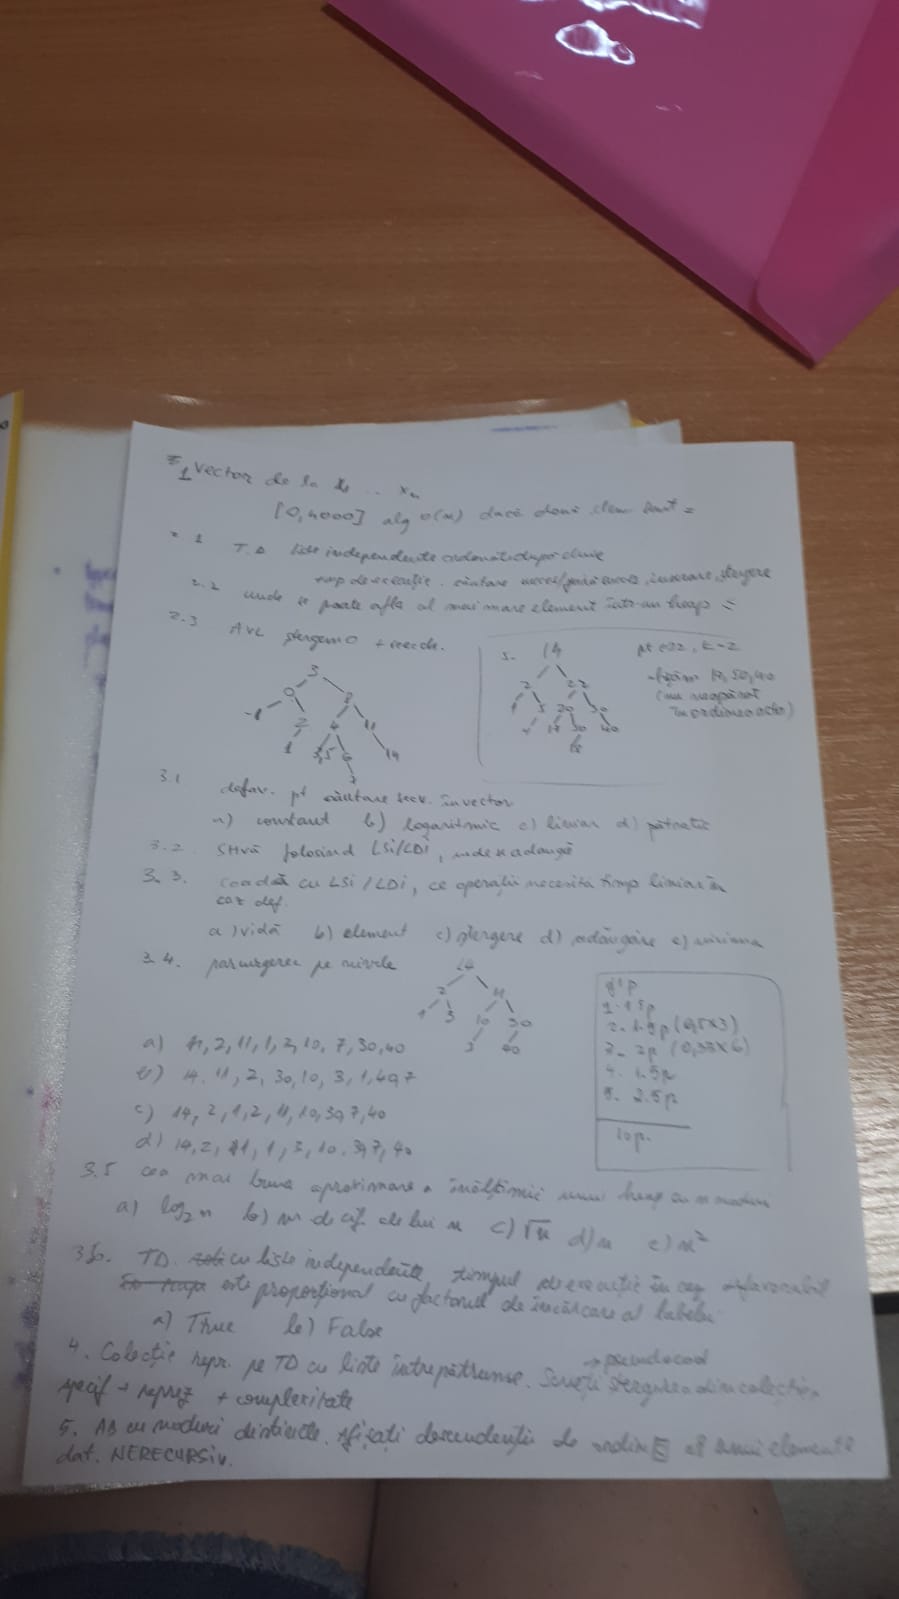 1 Vector de la x₁ .. xₙ
[0,4000] alg O(n) dacă două elem sunt =
2.1 T.D liste independente ordonate după cheie
timp de execuție. căutare succes/fără succes, inserare, ștergere
2.2 unde se poate afla al mai mare element într-un heap
2.3 AVL ștergem 0 + reech.
3
0 8
-1 2 4 11
1 3,5 6 14
7
5. 14
2 22
1 5 20 30
4 17 30 40
pt e=22, k=2
afișăm 17, 50, 40
(nu neapărat
în ordinea asta)
3.1 defav. pt căutare secv. în vector
a) constant b) logaritmic c) liniar d) pătratic
3.2. Stivă folosind LSI/LDI, unde adaugă
3.3. coadă cu LSI/LDI, ce operații necesită timp liniar în
caz def.
a) vidă b) element c) ștergere d) adăugare e) niciuna
3.4. parcurgerea pe nivele
14
2 11
1 3 10 30
7 40
a) 14, 2, 11, 1, 3, 10, 7, 30, 40
b) 14, 11, 2, 30, 10, 3, 1, 40, 7
c) 14, 2, 1, 2, 11, 10, 30, 7, 40
d) 14, 2, 11, 1, 3, 10, 30, 7, 40
of 1p
1. 1.5p
2. 1.5p (0,5x3)
3. 2p (0,33x6)
4. 1.5p
5. 2.5p
10p.
3.5 cea mai bună aproximare a înălțimii unui heap cu n noduri
a) log₂n b) nr de cif. ale lui n c) √n d) n e) n²
3.6. TD cu liste independente, timpul de execuție în caz defavorabil
este proporțional cu factorul de încărcare al tabelei
a) True b) False
4. Colecție repr. pe TD cu liste întrepătrunse. Scrieți ștergerea din colecție
→ pseudocod
specif + reprez + complexitate
5. AB cu noduri distincte. Afișați descendenții de ordin k al unui element
dat. NERECURSIV.